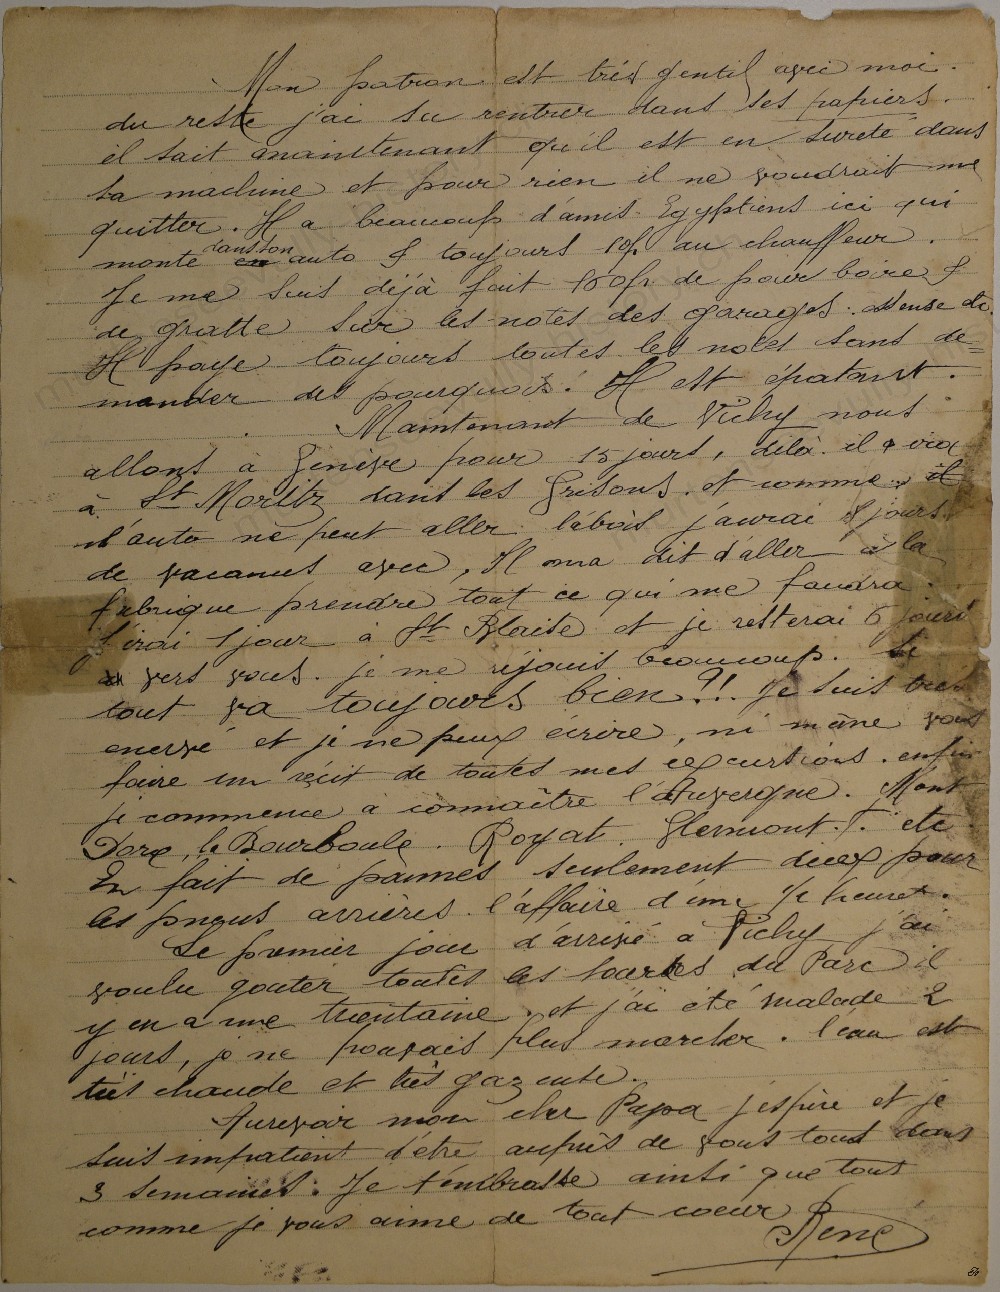 Mon patron est très gentil avec moi.
du reste j'ai su rentrer dans ses papiers.
il sait maintenant qu'il est en sureté dans
sa machine et pour rien il ne voudrait me
quitter. Il a beaucoup d'amis Egyptiens ici qui
monte dans son auto & toujours 10f. au chauffeur.
Je me suis déjà fait 150fr de pour boire &
de gratte sur les notes des garages. essense etc.
Il paye toujours toutes les notes sans de=
mander des pourquois! Il est épatant.
Maintenant de Vichy nous
allons à Genève pour 15 jours, delà il a
à St Moritz dans les Grisons. et comme il
l'auto ne peut aller là bas j'aurai 8 jours
de vacances avec, Il m'a dit d'aller à la
fabrique prendre tout ce qui me faudra.
J'irai 1 jour à St Blaise et je resterai 6 jours
vers vous. je me réjouis beaucoup. si
tout va toujours bien?!! Je suis très
enervé et je ne peux écrire, ni même vous
faire un récit de toutes mes excursions. enfin
je commence à connaître l'Auvergne. Mont
Dore, la Bourboule. Royat. Glermont. F. etc
En fait de pannes seulement deux pour
les pneus arrières. l'affaire d'une ½ heure.
Le premier jour d'arrivé a Vichy j'ai
voulu gouter toutes les sources du Parc il
y en a une trentaine. et j'ai été malade 2
jours, je ne pouvais plus marcher. l'eau est
très chaude et très gazeuse.
Aurevoir mon cher Papa j'espère et je
suis impatient d'être auprès de vous tous dans
3 semaines. Je t'embrasse ainsi que tous
comme je vous aime de tout coeur
René